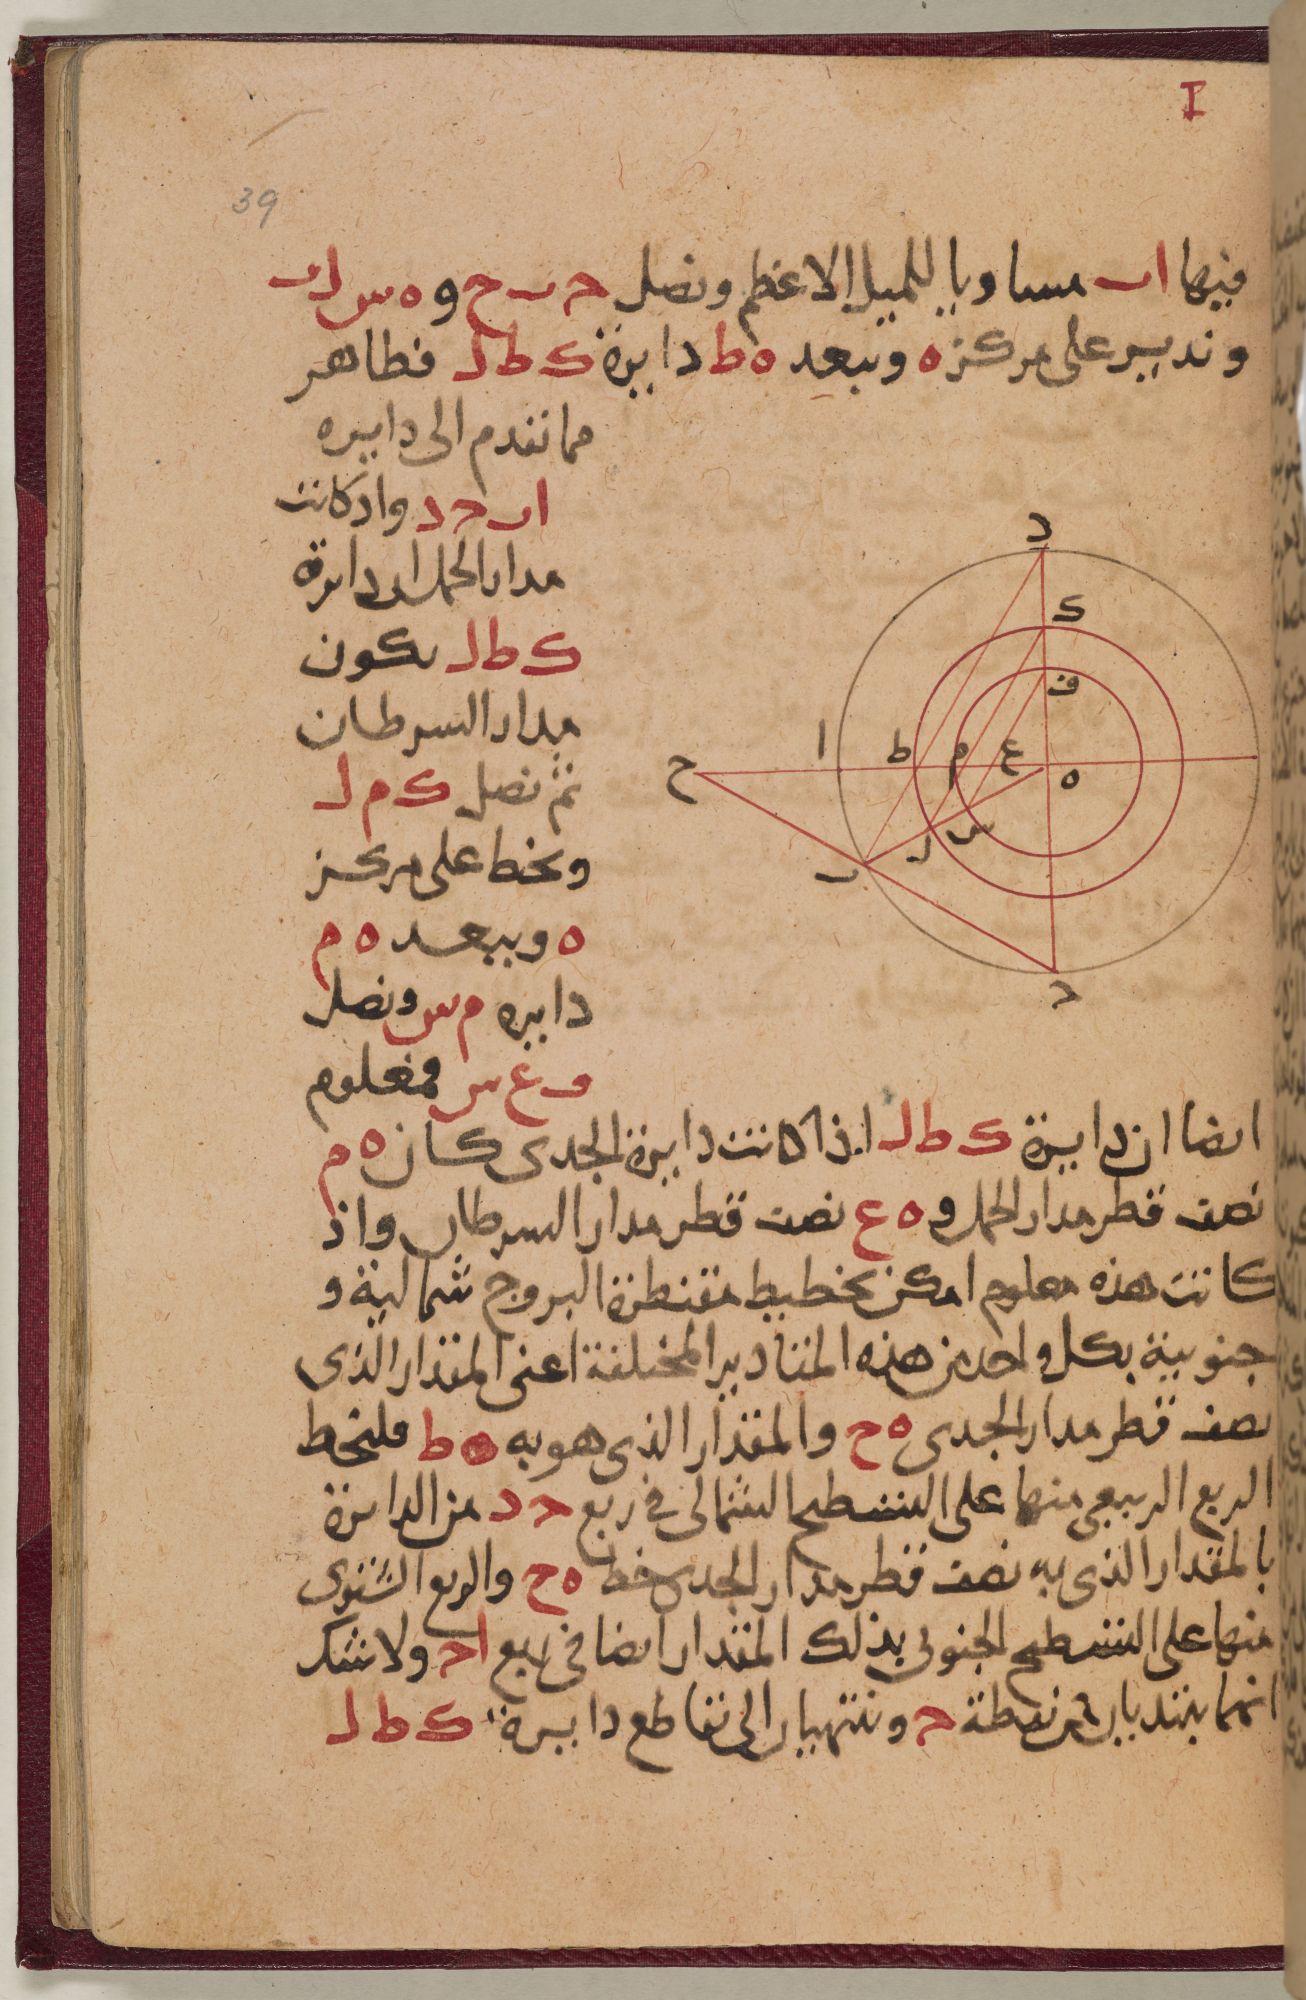 I
39
فيها اب مساويا للميل الاعظم ونصل حرح و ه س ل ب
وندير على مركز ه وببعد ه ط دايرة ك ط ل فظاهر
مما تقدم الى دايره
ا ب ح د واد كانت
مدار الحمل ان دايرة
ك ط ل يكون
مدار السرطان
ثم نصل ك م ل
ونخط على مركز
ه وببعد ه م
دايره م س ونصل
ف ع س فمعلوم
د
ك
ف
ا
ط
م
ع
ه
ح
س
ل
ب
ح
ايضا ان دايرة ك ط ل اذا كانت دايرة الجدى كان ه م
نصف قطر مدار الحمل و ه ع نصف قطر مدار السرطان واذ
كانت هذه معلوم امكن تخطيط مقنطرة البروج شمالية و
جنوبية بكل واحد من هذه المقادير المختلفة اعنى المقدار الذى
نصف قطر مدار الجدى ه ح والمقدار الذى هو به ه ط فلنخط
الربع الربيعى منها على التسطيح الشمالى فى ربع ح د من الدايرة
بالمقدار الذى به نصف قطر مدار الجدى خط ه ح والربع الشتوى
منها على التسطيح الجنوبى بذلك المقدار ايضا فى ربع ا ح ولا شك
انهما يبتديان من نقطة ح وينتهيان الى تقاطع دايرة ك ط ل